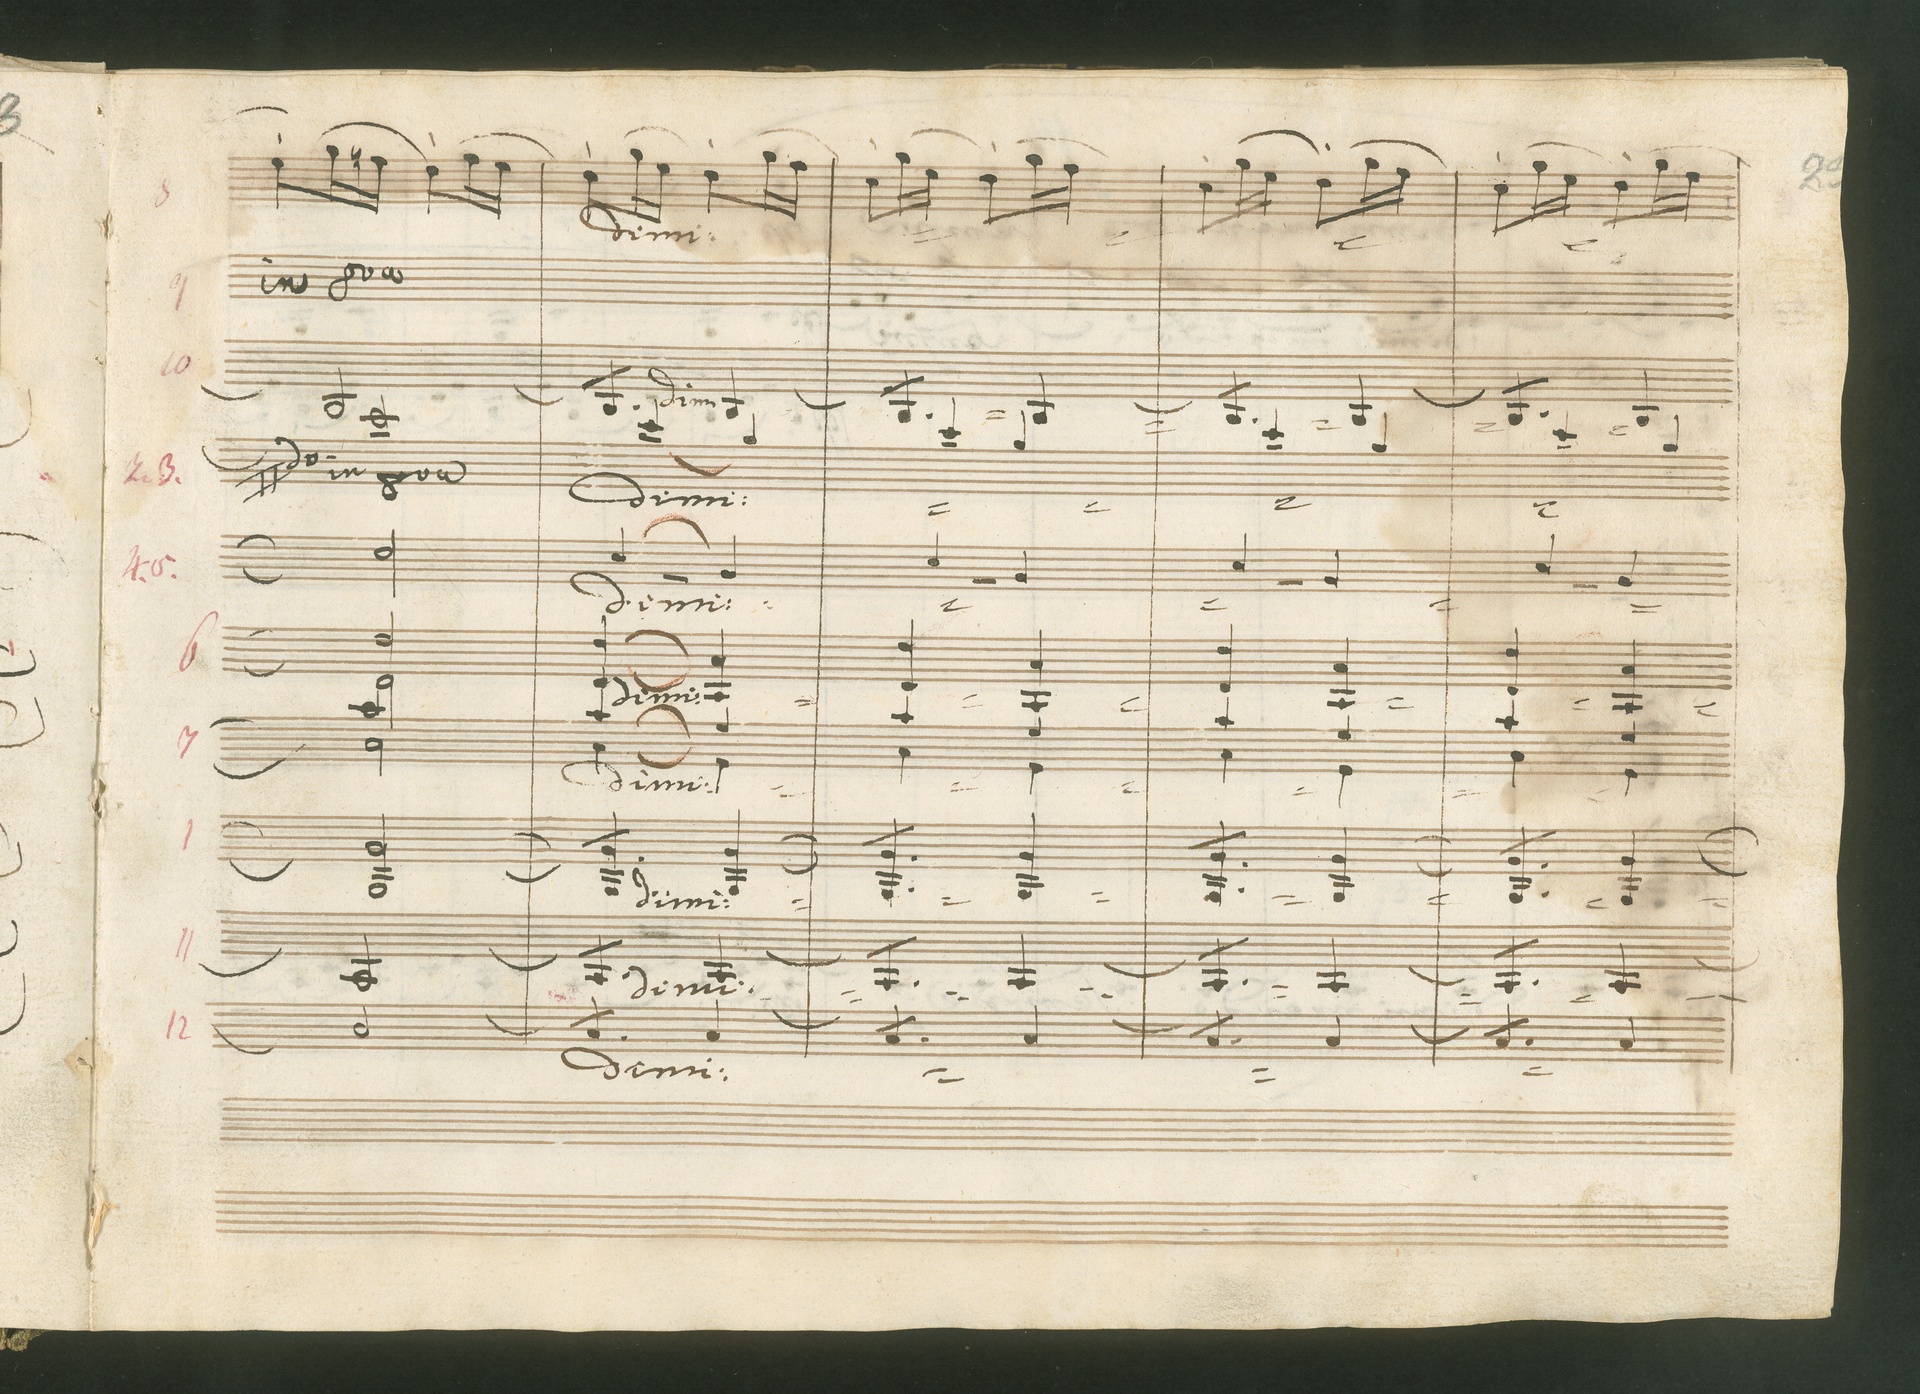 8
dimi:
9
in 8va
10
dim
2.3.
in 8va
dimi:
4.5.
dimi:
6
dimi:
7
dimi:
1
dimi:
11
dimi:
12
dimi: